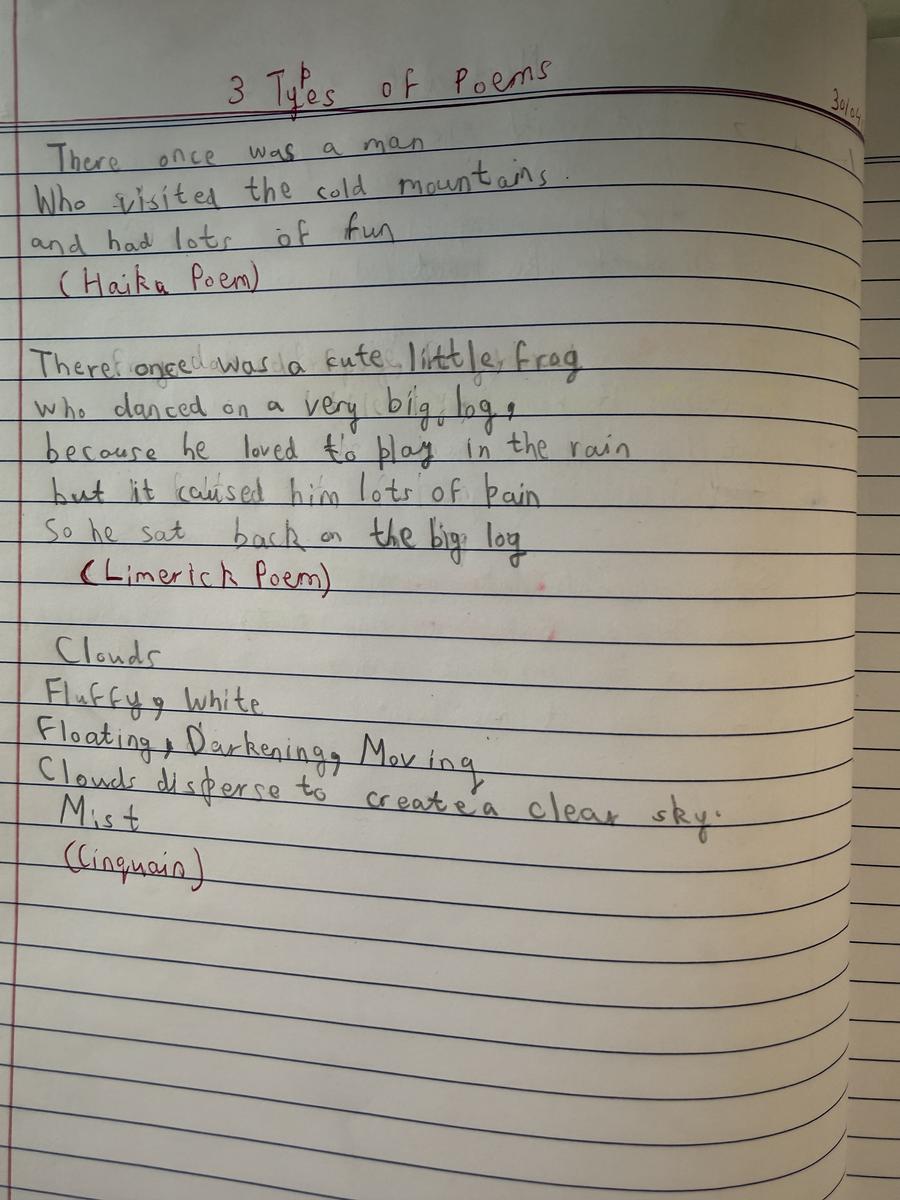 3 Types of Poems
30/04
There once was a man
Who visited the cold mountains.
and had lots of fun
(Haiku Poem)
There once was a cute little frog
who danced on a very big log,
because he loved to play in the rain
but it caused him lots of pain
So he sat back on the big log
(Limerick Poem)
Clouds
Fluffy, White
Floating, Darkening, Moving
Clouds disperse to create a clear sky.
Mist
(Cinquain)